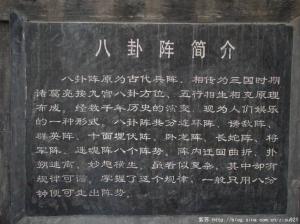 八卦阵简介
八卦阵原为古代兵阵、相传为三国时期
诸葛亮按九宫八卦方位、五行相生相克原理
布成，经数千年历史的演变、现为人们娱乐
的一种形式，八卦阵共分连环阵、诱敌阵、
群英阵、十面埋伏阵、卧龙阵、长蛇阵、将
军阵、迷魂阵八个阵势、阵内迂回曲折，扑
朔迷离，妙趣横生，虽看似复杂，其中却有
规律可循，掌握了这个规律、一般只用八分
钟便可走出阵势。